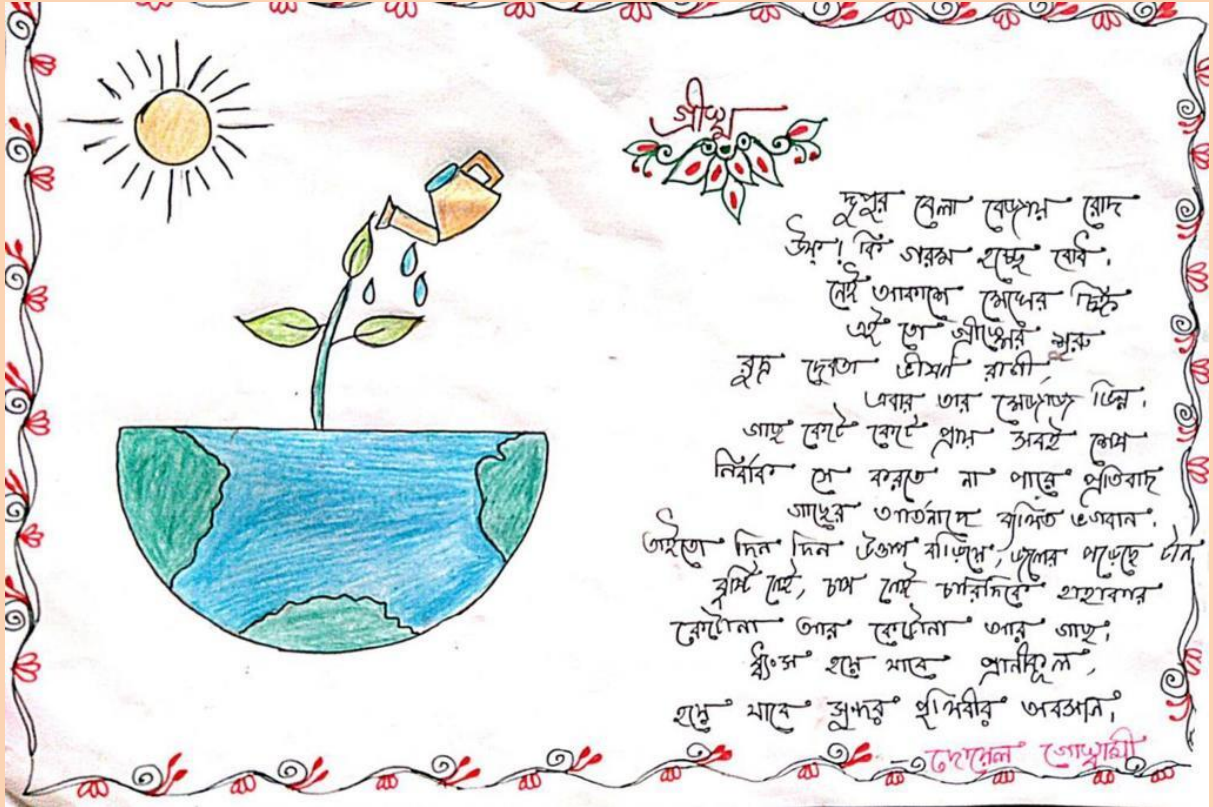 গ্রীষ্ম
দুপুর বেলা বেজায় রোদ
উফ্! কি গরম হচ্ছে বোধ।
নেই আকাশে মেঘের চিহ্ন
এই তো গ্রীষ্মের শুরু
দেবতা ভীষণ রাগী,
এবার তার মেজাজ ভিন্ন।
গাছ কেটে কেটে প্রায় সবই শেষ
নির্বাক সে করতে না পারে প্রতিবাদ
গাছের আর্তনাদে ব্যথিত ভগবান।
তাইতো দিন দিন উত্তাপ বাড়িয়ে, জলের পড়েছে টান
বৃষ্টি নেই, চাষ নেই চারিদিকে হাহাকার
কেটোনা আর কেটোনা আর গাছ।
ধ্বংস হয়ে যাবে প্রানীকূল,
হয়ে যাবে সুন্দর পৃথিবীর অবসান।
-দোয়েল গোস্বামী